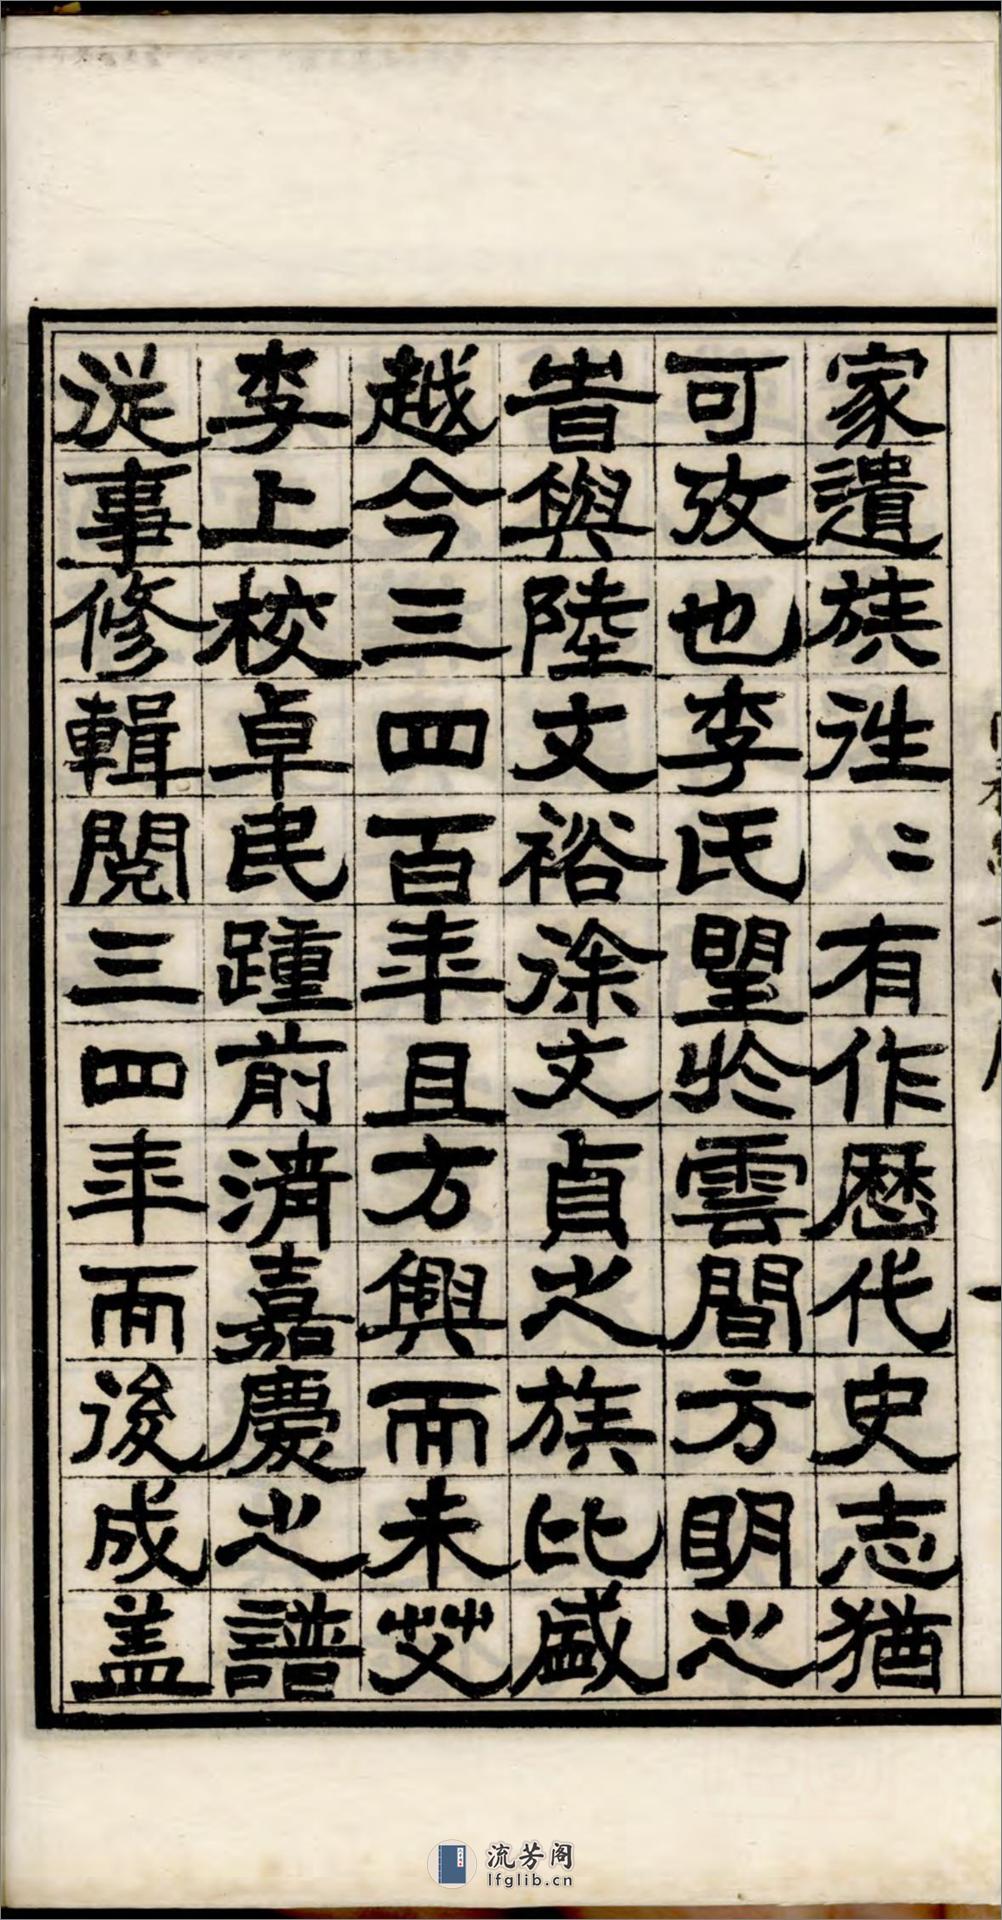 家遺族往〻有作歷代史志猶
可攷也李氏朢於雲間方明之
旹與陸文裕徐文貞之族比盛
越今三四百年且方興而未艾
李上校卓民踵前清嘉慶之譜
從事修輯閱三四年而後成蓋
流芳阁
lfglib.cn